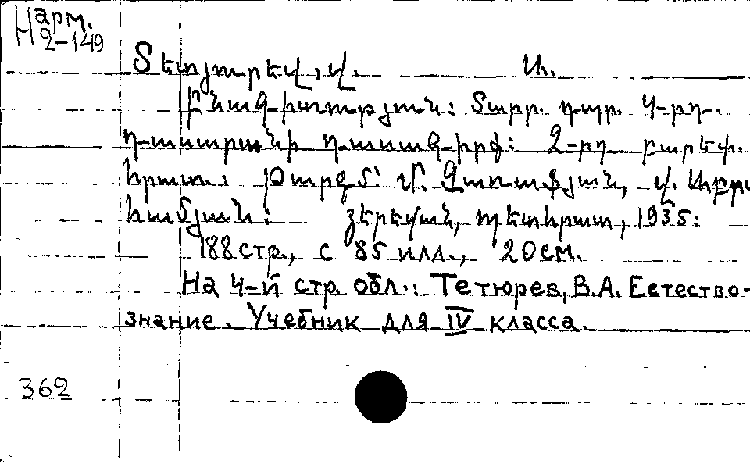 Нарм.
2-149
Տետյուրեվ, Վ. Ա.
Բնագիտություն: Տարր. դպր. 4-րդ
դասարանի դասագիրք: 2-րդ բարեփ.
հրատ. Թարգմ՝ Մ. Զառաֆյան, Վ. Աբրա
համյան: Յերեվան, Պետհրատ, 1935:
188 стр., с 85 илл., 20 см.
На 4-й стр. обл.: Тетюрев, В.А. Естество-
знание. Учебник для IV класса.
362